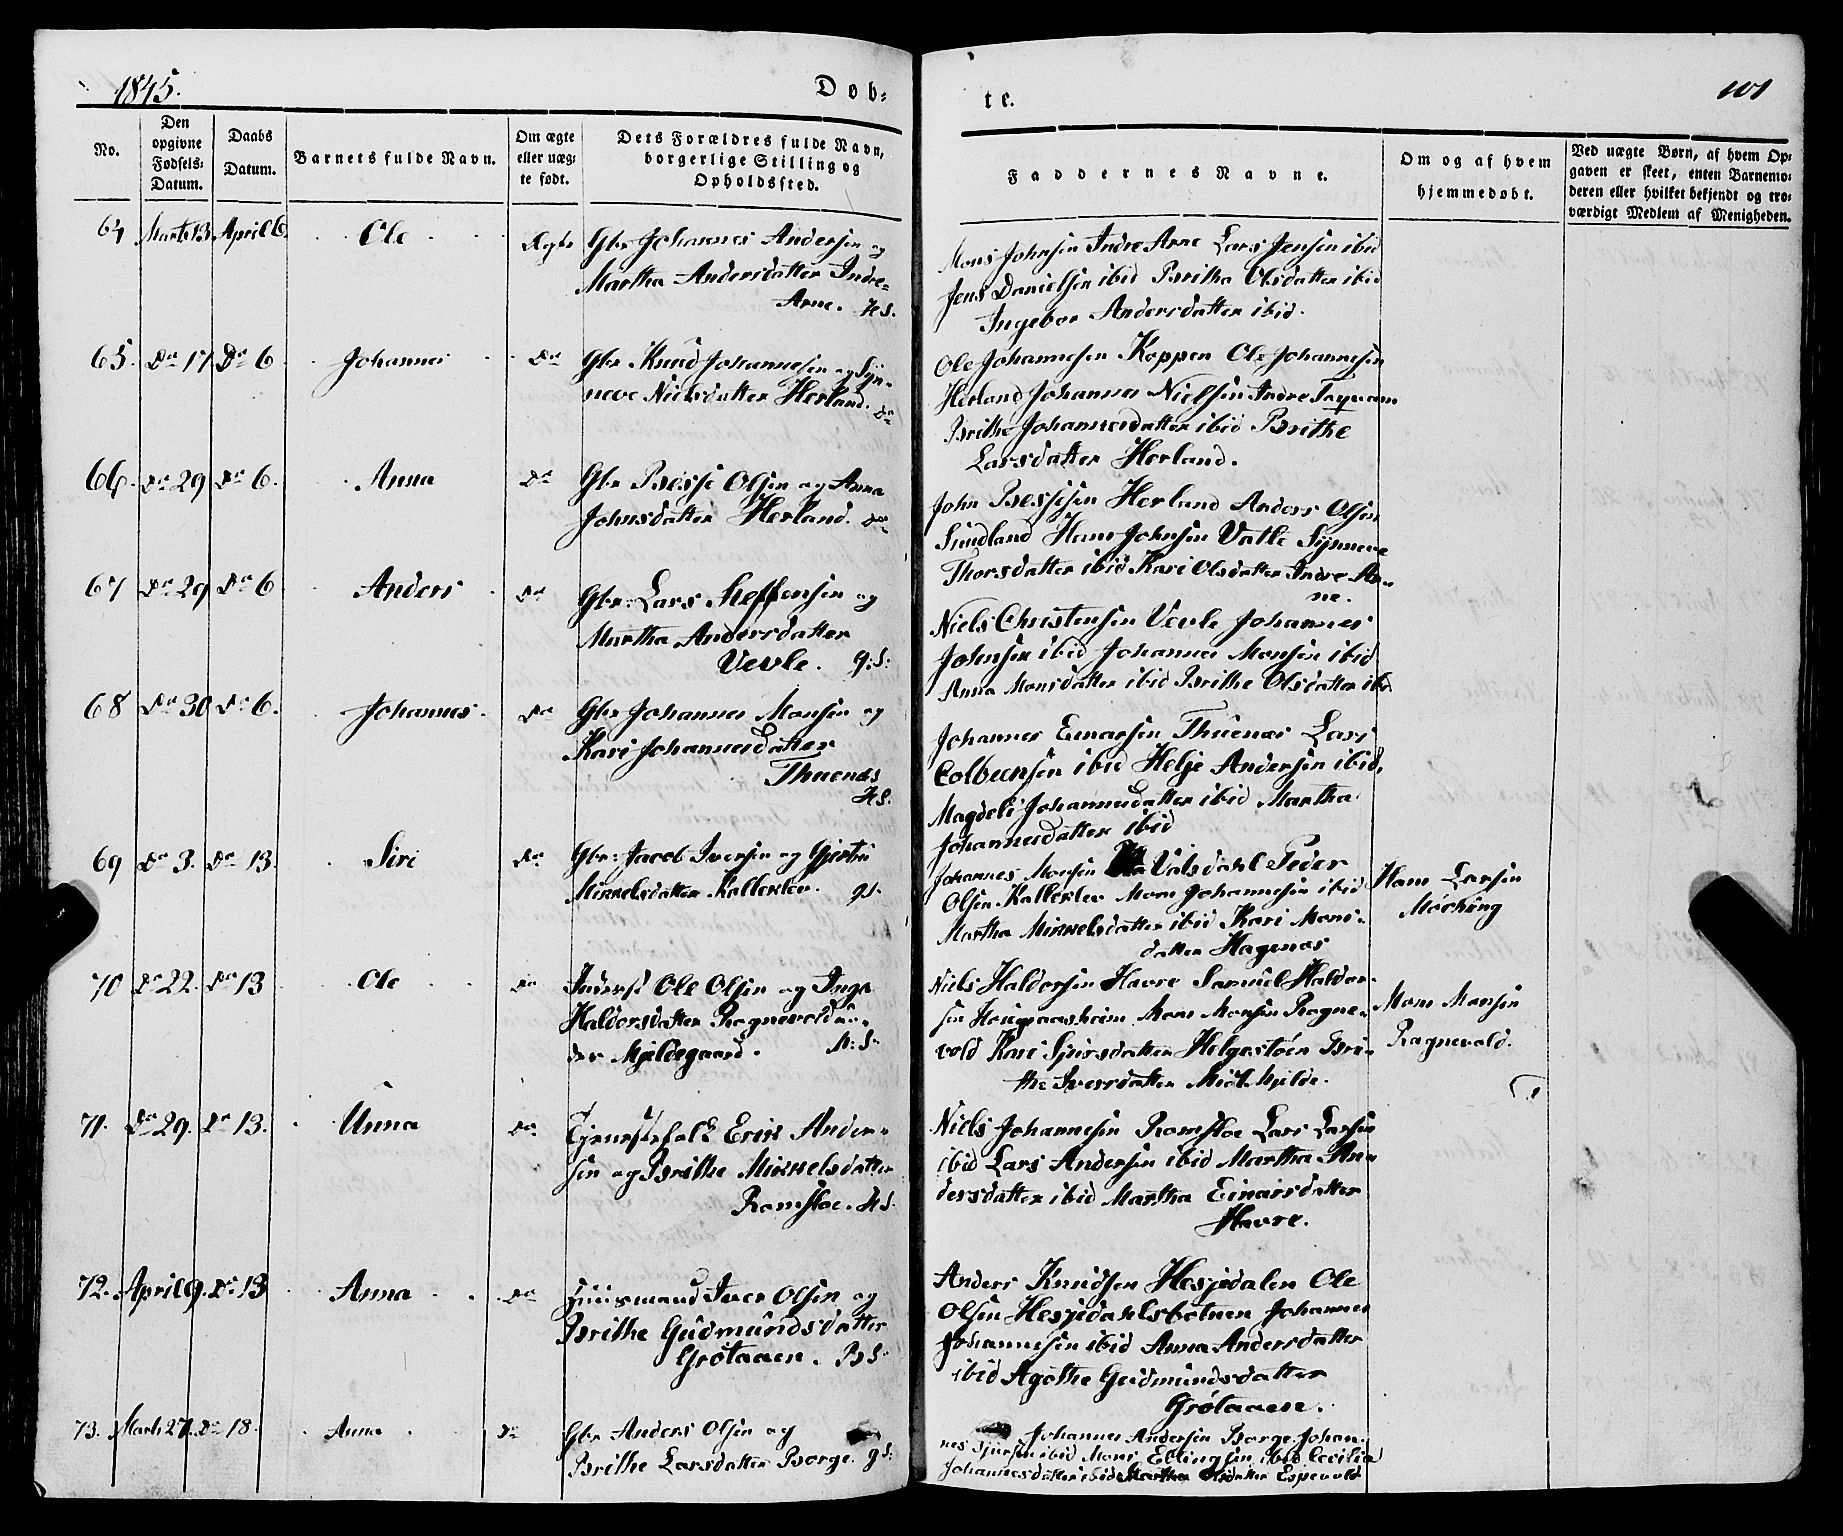 1845.
Døb-
te.
101
No.
Den opgivne Fødsels-Datum.
Daabs Datum.
Barnets fulde Navn.
Om ægte eller uægte født.
Dets Forældres fulde Navn, borgerlige Stilling og Opholdssted.
Faddernes Navne.
Om og af hvem hjemmedøbt.
Ved uægte Børn, af hvem Opgaven er skeet, enten Barnemoderen eller hvilket bekjendt og troværdigt Medlem af Menigheden.
64 Marts 13 April 6. Ole Ægte Gbr Johannes Andersen og
Martha Andersdatter Indre-
Arne. H S.
Mons Johnsen Indre Arne Lars Jensen ibid
Jens Danielsen ibid Britha Olsdatter ibid
Ingebor Andersdatter ibid.
65. Do 17 Do 6. Johannes Do Gbr Knud Johannesen og Syn-
neve Nielsdatter Herland. Do
Ole Johannesen Koppen Ole Johannesen
Herland Johannes Nielsen Indre
Brithe Johannesdatter ibid Brithe
Larsdatter Herland.
66. Do 29 Do 6. Anna Do Gbr Besse Olsen og Anna
Johnsdatter Herland. Do
John Bessesen Herland Anders Olsen
Sundland Hans Johnsen Vatle Synneve
Thorsdatter ibid Kari Olsdatter Indre Ar-
ne.
67 Do 29 Do 6 Anders Do Gbr. Lars Steffensen og
Martha Andersdatter
Vevle. G: S:
Niels Christensen Vevle Johannes
Johnsen ibid Johannes Monsen ibid
Anna Monsdatter ibid Brithe Olsdatter ibid
68 Do 30 Do 6. Johannes. Do Gbr Johannes Monsen og
Kari Johannesdatter
Thuenæs
H S.
Johannes Einarsen Thuenæs Lars
Colbeensen ibid Helje Andersen ibid,
Magdeli Johannesdatter ibid Martha
Johannesdatter ibid
69 Do 3. Do 13. Siri Do Gbr: Jacob Iversen og Gjertru
Mikkelsdatter Kalleklev. G S.
Johannes Monsen Valsdahl Peder
Olsen Kalleklev Mons Johannesen ibid
Martha Mikkelsdatter ibid Kari Mons-
datter Hagenæs
Hans Larsen
70 Do 22. Do 13 Ole Do Inderst Ole Olsen og Inga
Haldorsdatter Ragnevold un-
der Mjeldegaard. M: S:
Niels Haldorsen Havre Samuel Haldor-
sen Mons Monsen Ragne-
vold Kari Sjursdatter Helgestøen Bri-
the Iversdatter Midt Mjelde.
Mons Monsen
Ragnevold.
71. Do 29. Do 13. Anna Do Tjenestefolk Erik Ander-
sen og Brithe Mikkelsdatter
Romsloe. H S.
Niels Johannesen Romsloe Lars Larsen
ibid Lars Andersen ibid Martha An-
dersdatter ibid Martha Einarsdatter
Havre.
72. April 9. Do 13 Anna Do Huusmand Iver Olsen og
Brithe Gudmundsdatter
Grøtaaen. B S.
Anders Knudsen Hesjedalen Ole
Olsen Hesjedahlsbotnen Johannes
Johannesen ibid Anna Andersdatter
ibid Agathe Gudmundsdatter
Grøtaaen.
73. Marts 27. Do 18. Anna Do Gbr Anders Olsen og
Brithe Larsdatter Borge. G S:
Johannes Andersen Borge Johan-
nes Sjursen ibid Mons Ellingsen ibid Cecilia
Johannesdatter ibid Martha Olsdatter Espevold